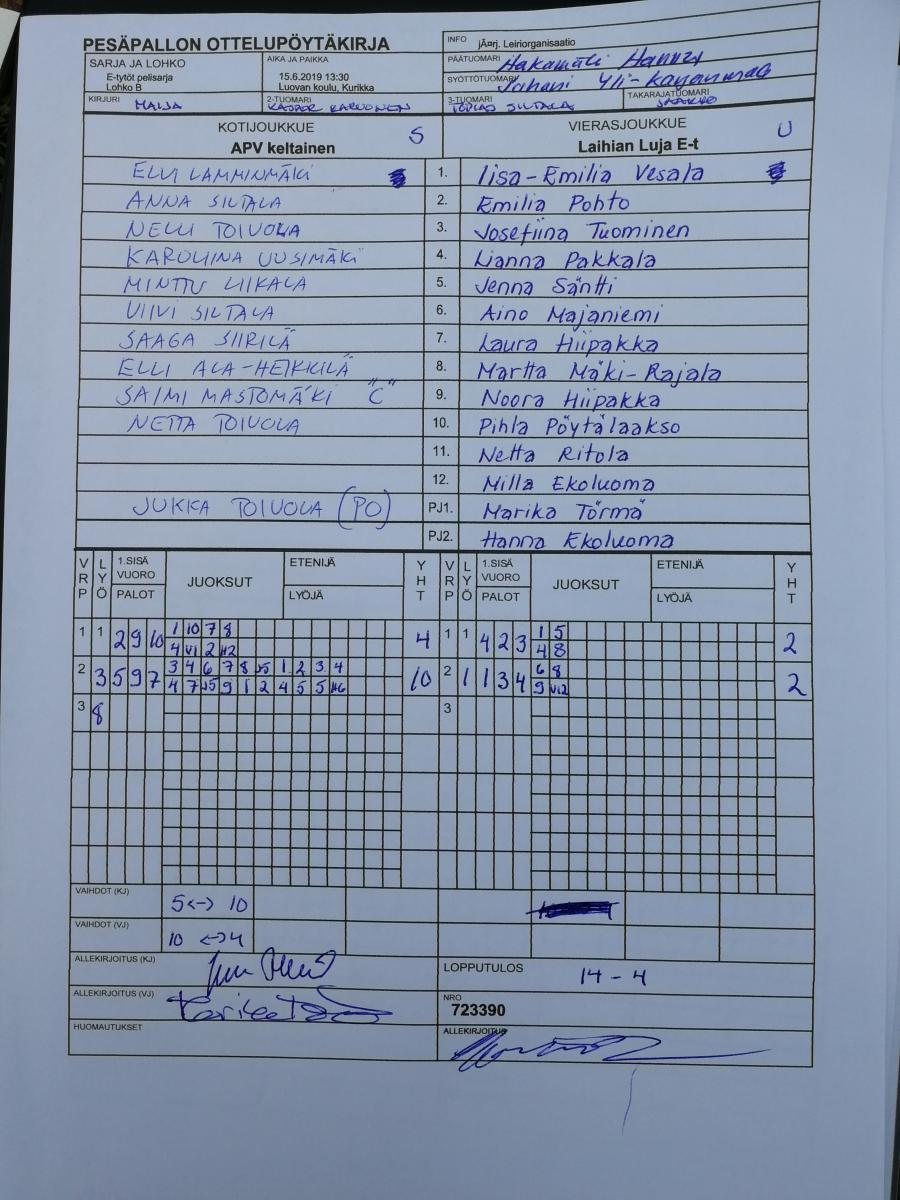 PESÄPALLON OTTELUPÖYTÄKIRJA
INFO jÄ¤rj. Leiriorganisaatio
SARJA JA LOHKO
E-tytöt pelisarja
Lohko B
AIKA JA PAIKKA
15.6.2019 13:30
Luovan koulu, Kurikka
PÄÄTUOMARI Hakamäki Hannu
SYÖTTÖTUOMARI Juhani Yli-
KIRJURI MAIJA
2-TUOMARI KASPER KARVONEN
3-TUOMARI TOPIAS SILTALA
TAKARAJATUOMARI JAAKKO
KOTIJOUKKUE S
APV keltainen
VIERASJOUKKUE U
Laihian Luja E-t
ELVI LAMMINMÄKI 1. Iisa-Emilia Vesala
ANNA SILTALA 2. Emilia Pohto
NELLI TOIVOLA 3. Josefiina Tuominen
KAROLIINA UUSIMÄKI 4. Lianna Pakkala
MINTTU LIIKALA 5. Jenna Säntti
VIIVI SILTALA 6. Aino Majaniemi
SAAGA SIIRILÄ 7. Laura Hiipakka
ELLI ALA-HEIKKILÄ 8. Martta Mäki-Rajala
SAIMI MASTOMÄKI "C" 9. Noora Hiipakka
NETTA TOIVOLA 10. Pihla Pöytälaakso
11. Netta Ritola
12. Milla Ekoluoma
JUKKA TOIVOLA (PO) PJ1. Marika Törmä
PJ2. Hanna Ekoluoma
VRP LYÖ 1.SISÄ VUORO PALOT JUOKSUT ETENIJÄ LYÖJÄ YHT VRP LYÖ 1.SISÄ VUORO PALOT JUOKSUT ETENIJÄ LYÖJÄ YHT
1 1 2 9 10 1 10 7 8 4 1 1 4 2 3 1 5 2
4 V1 2 H2 4 8
2 3 5 9 7 3 4 6 7 8 J5 1 2 3 4 10 2 1 1 3 4 6 8 2
4 7 J5 9 1 2 4 5 5 H6 9 V12
3 8 3
VAIHDOT (KJ) 5<-> 10
VAIHDOT (VJ) 10 <->4
ALLEKIRJOITUS (KJ)
LOPPUTULOS 14-4
ALLEKIRJOITUS (VJ)
NRO
723390
HUOMAUTUKSET
ALLEKIRJOITUS